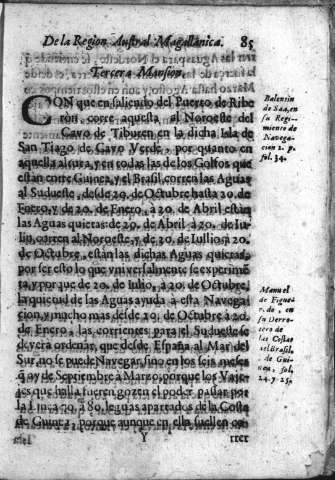 De la Region Austral Magallanica. 85
Tercera Mansion.
CON que en saliendo del Puerto de Ribe
ron, corre aquesta al Noroeste del
Cavo de Tiburen en la dicha Isla de
San Tiago de Cavo Verde, por quanto en
aquella altura, y en todas las de los Golfos que
estàn corre Guinea, y el Brasil corren las Aguas
al Sudueste, desde 20. de Octubre hasta 20. de
Enero, y de 20. de Enero, à 20. de Abril estàn
las Aguas quietas: de 20. de Abril, à 20. de Iu-
lin, corren al Noroeste, y de 20. de Iullio à 20.
de Octubre, estàn las dichas Aguas quietas,
por ser esto lo que vniversalmente se experimé
ta, y porque de 20. de Iulio, à 20. de Octubre,
la quietud de las Aguas ayuda à esta Navega
cion, y mucho màs desde 20. de Octubre à 20.
de Enero, las corrientes para el Sudueste se
deverà ordenar, que desde España al Mar del
Sur, no se puede Navegar, sino en los seis meses
q ay de Septiembre à Marzo, porque los Vaje-
les que allà fueren gozen el poder passar por
la Linea 70. à 80. leguas apartados de la Costa
de Guinea, porque aunque en ella suelen co-
Y rrer
Balentin
de Saa, en
su Regi-
miento de
Navega-
cion 2. p.
fol. 34.
Manuel
de Figuei
r.do, en
su Derro-
tero de
las Costas
del Brasil,
de Gui-
nea, fol.
24. y 25.